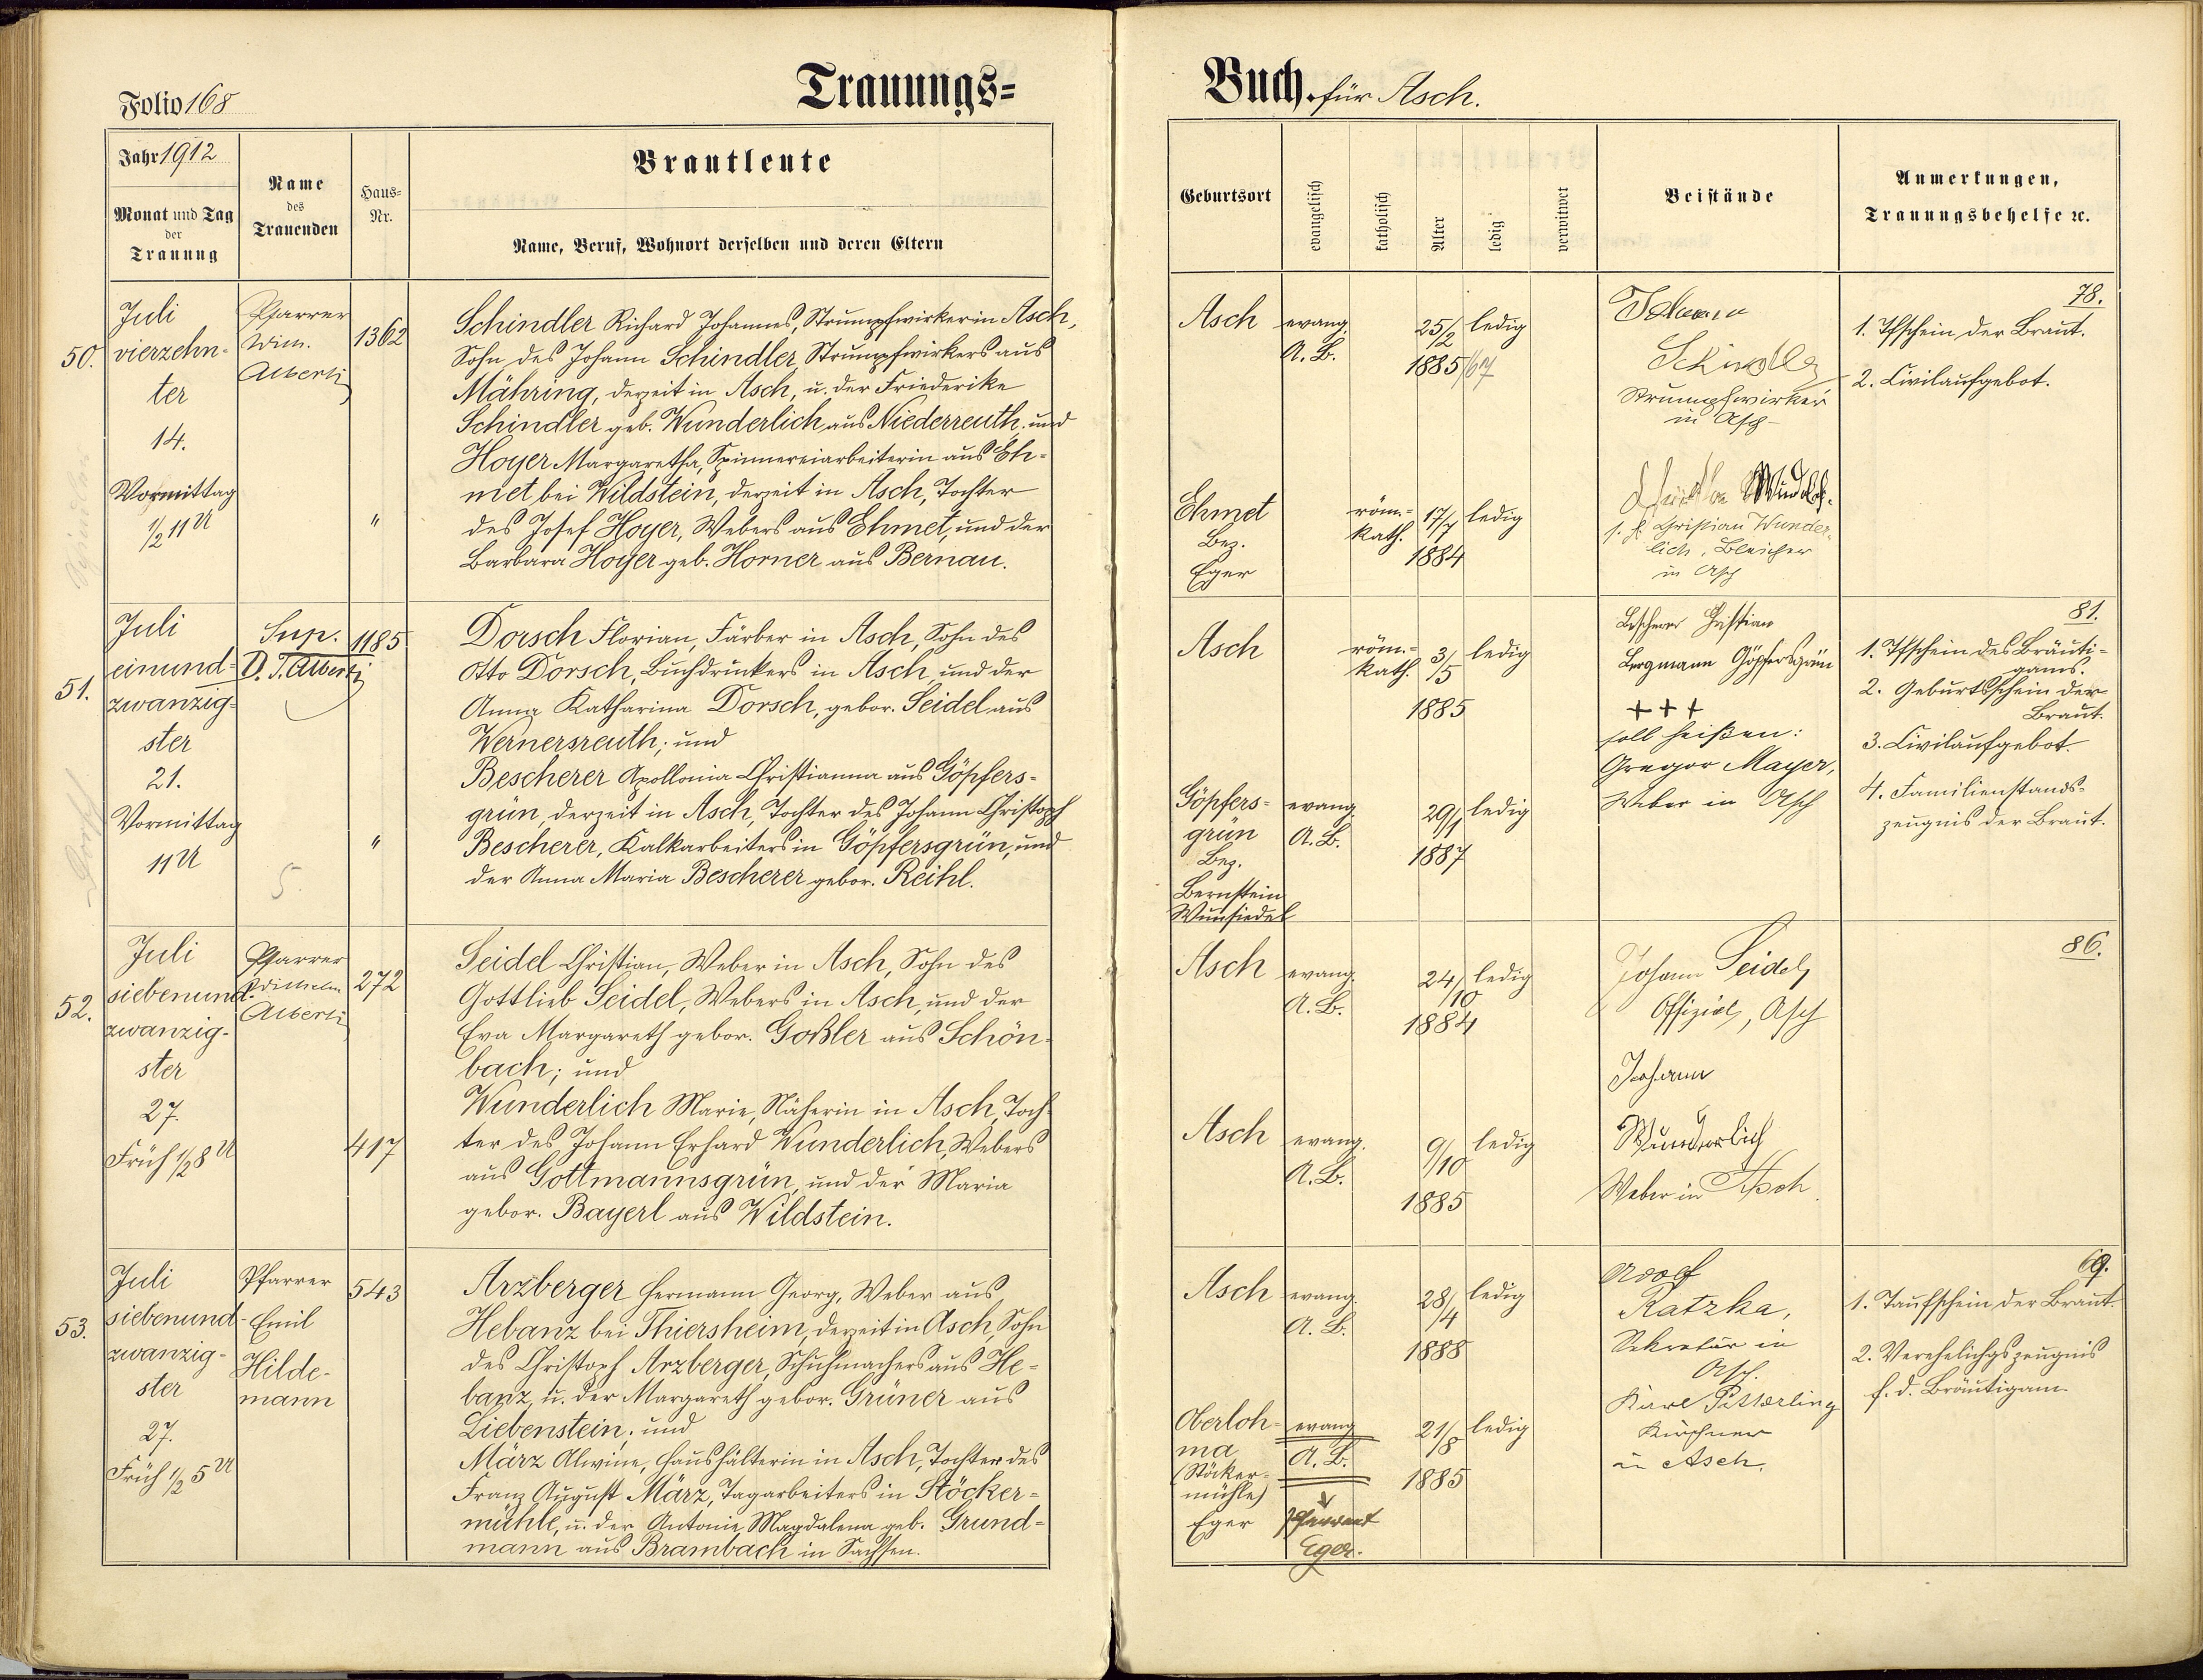 Folio 168
Trauungs=
Jahr 1912
Monat und Tag
der
Trauung
Name
des
Trauenden
Haus=
Nr.
Brautleute
Name, Beruf, Wohnort derselben und deren Eltern
50.
Juli
vierzehn-
ter
14.
Vormittag
1/2 11 U
Pfarrer
Wilh.
Alberti
1362
"
Schindler Richard Johannes, Strumpfwirker in Asch,
Sohn des Johann Schindler, Strumpfwirkers aus
Mähring, derzeit in Asch, u. der Friederike
Schindler geb. Wunderlich aus Niederreuth. und
Hoyer Margaretha, Spinnereiarbeiterin aus Eh-
met bei Wildstein, derzeit in Asch, Tochter
des Josef Hoyer, Webers aus Ehmet, und der
Barbara Hoyer geb. Horner aus Bernau.
51.
Juli
einund-
zwanzig-
ster
21.
Vormittag
11 U
Sup.
D. T. Alberti
1185
"
Dorsch Florian, Färber in Asch, Sohn des
Otto Dorsch, Buchdruckers in Asch, und der
Anna Katharina Dorsch, gebor. Seidel aus
Wernersreuth; und
Bescherer Apollonia Christianna aus Göpfers-
grün, derzeit in Asch, Tochter des Johann Christoph
Bescherer, Kalkarbeiters in Göpfersgrün, und
der Anna Maria Bescherer gebor. Reihl.
52.
Juli
siebenund-
zwanzig-
ster
27.
Früh 1/2 8 U
Pfarrer
Wilhelm
Alberti
272
417
Seidel Christian, Weber in Asch, Sohn des
Gottlieb Seidel, Webers in Asch, und der
Eva Margareth gebor. Goßler aus Schön-
bach; und
Wunderlich Marie, Näherin in Asch, Toch-
ter des Johann Erhard Wunderlich, Webers
aus Gottmannsgrün, und der Maria
gebor. Bayerl aus Wildstein.
53.
Juli
siebenund-
zwanzig-
ster
27.
Früh 1/2 5 U
Pfarrer
Emil
Hilde-
mann
543
Arzberger Hermann Georg, Weber aus
Hebanz bei Thiersheim, derzeit in Asch, Sohn
des Christoph Arzberger, Schuhmachers aus He-
banz, u. der Margareth gebor. Grüner aus
Liebenstein; und
März Alwine, Haushälterin in Asch, Tochter des
Franz August März, Tagarbeiters in Stöcker-
mühle, u. der Antonie Magdalena geb. Grund-
mann aus Brambach in Sachsen.
Buch. für Asch.
Geburtsort
evangelisch
katholisch
Alter
ledig
verwitwet
Beistände
Anmerkungen,
Trauungsbehelfe ꝛc.
Asch
evang.
A. B.
25/2
1885
ledig
Johann
Schindler
Strumpfwirker
in Asch
78.
1. Tfschein der Braut.
2. Civilaufgebot.
Ehmet
Bez.
Eger
röm.-
kath.
17/7
1884
ledig
Christian Wunder-
lich, Bleicher
in Asch
Asch
röm.-
kath.
3/5
1885
ledig
Bescherer
Bergmann Göpfersgrün
+++
soll heißen:
Gregor Mayer,
Weber in Asch
81.
1. Tfschein des Bräuti-
gams.
2. Geburtsschein der
Braut.
3. Civilaufgebot.
4. Familienstands-
zeugnis der Braut.
Göpfers-
grün
Bez.
Bernstein
Wunsiedel
evang.
A. B.
29/1
1887
ledig
Asch
evang.
A. B.
24/10
1884
ledig
Johann Seidel
Offizial, Asch
86.
Asch
evang.
A. B.
9/10
1885
ledig
Johann
Wunderlich
Weber in Asch.
Asch
evang.
A. B.
28/4
1888
ledig
Adolf
Ratzka,
Sekretär in
Asch.
69.
1. Taufschein der Braut.
2. Verehelichgszeugnis
f. d. Bräutigam.
Oberloh-
ma
(Stöcker-
mühle)
Eger
evang.
A. B.
Pfarramt
Eger.
21/8
1885
ledig
Karl
Kürschner
in Asch.